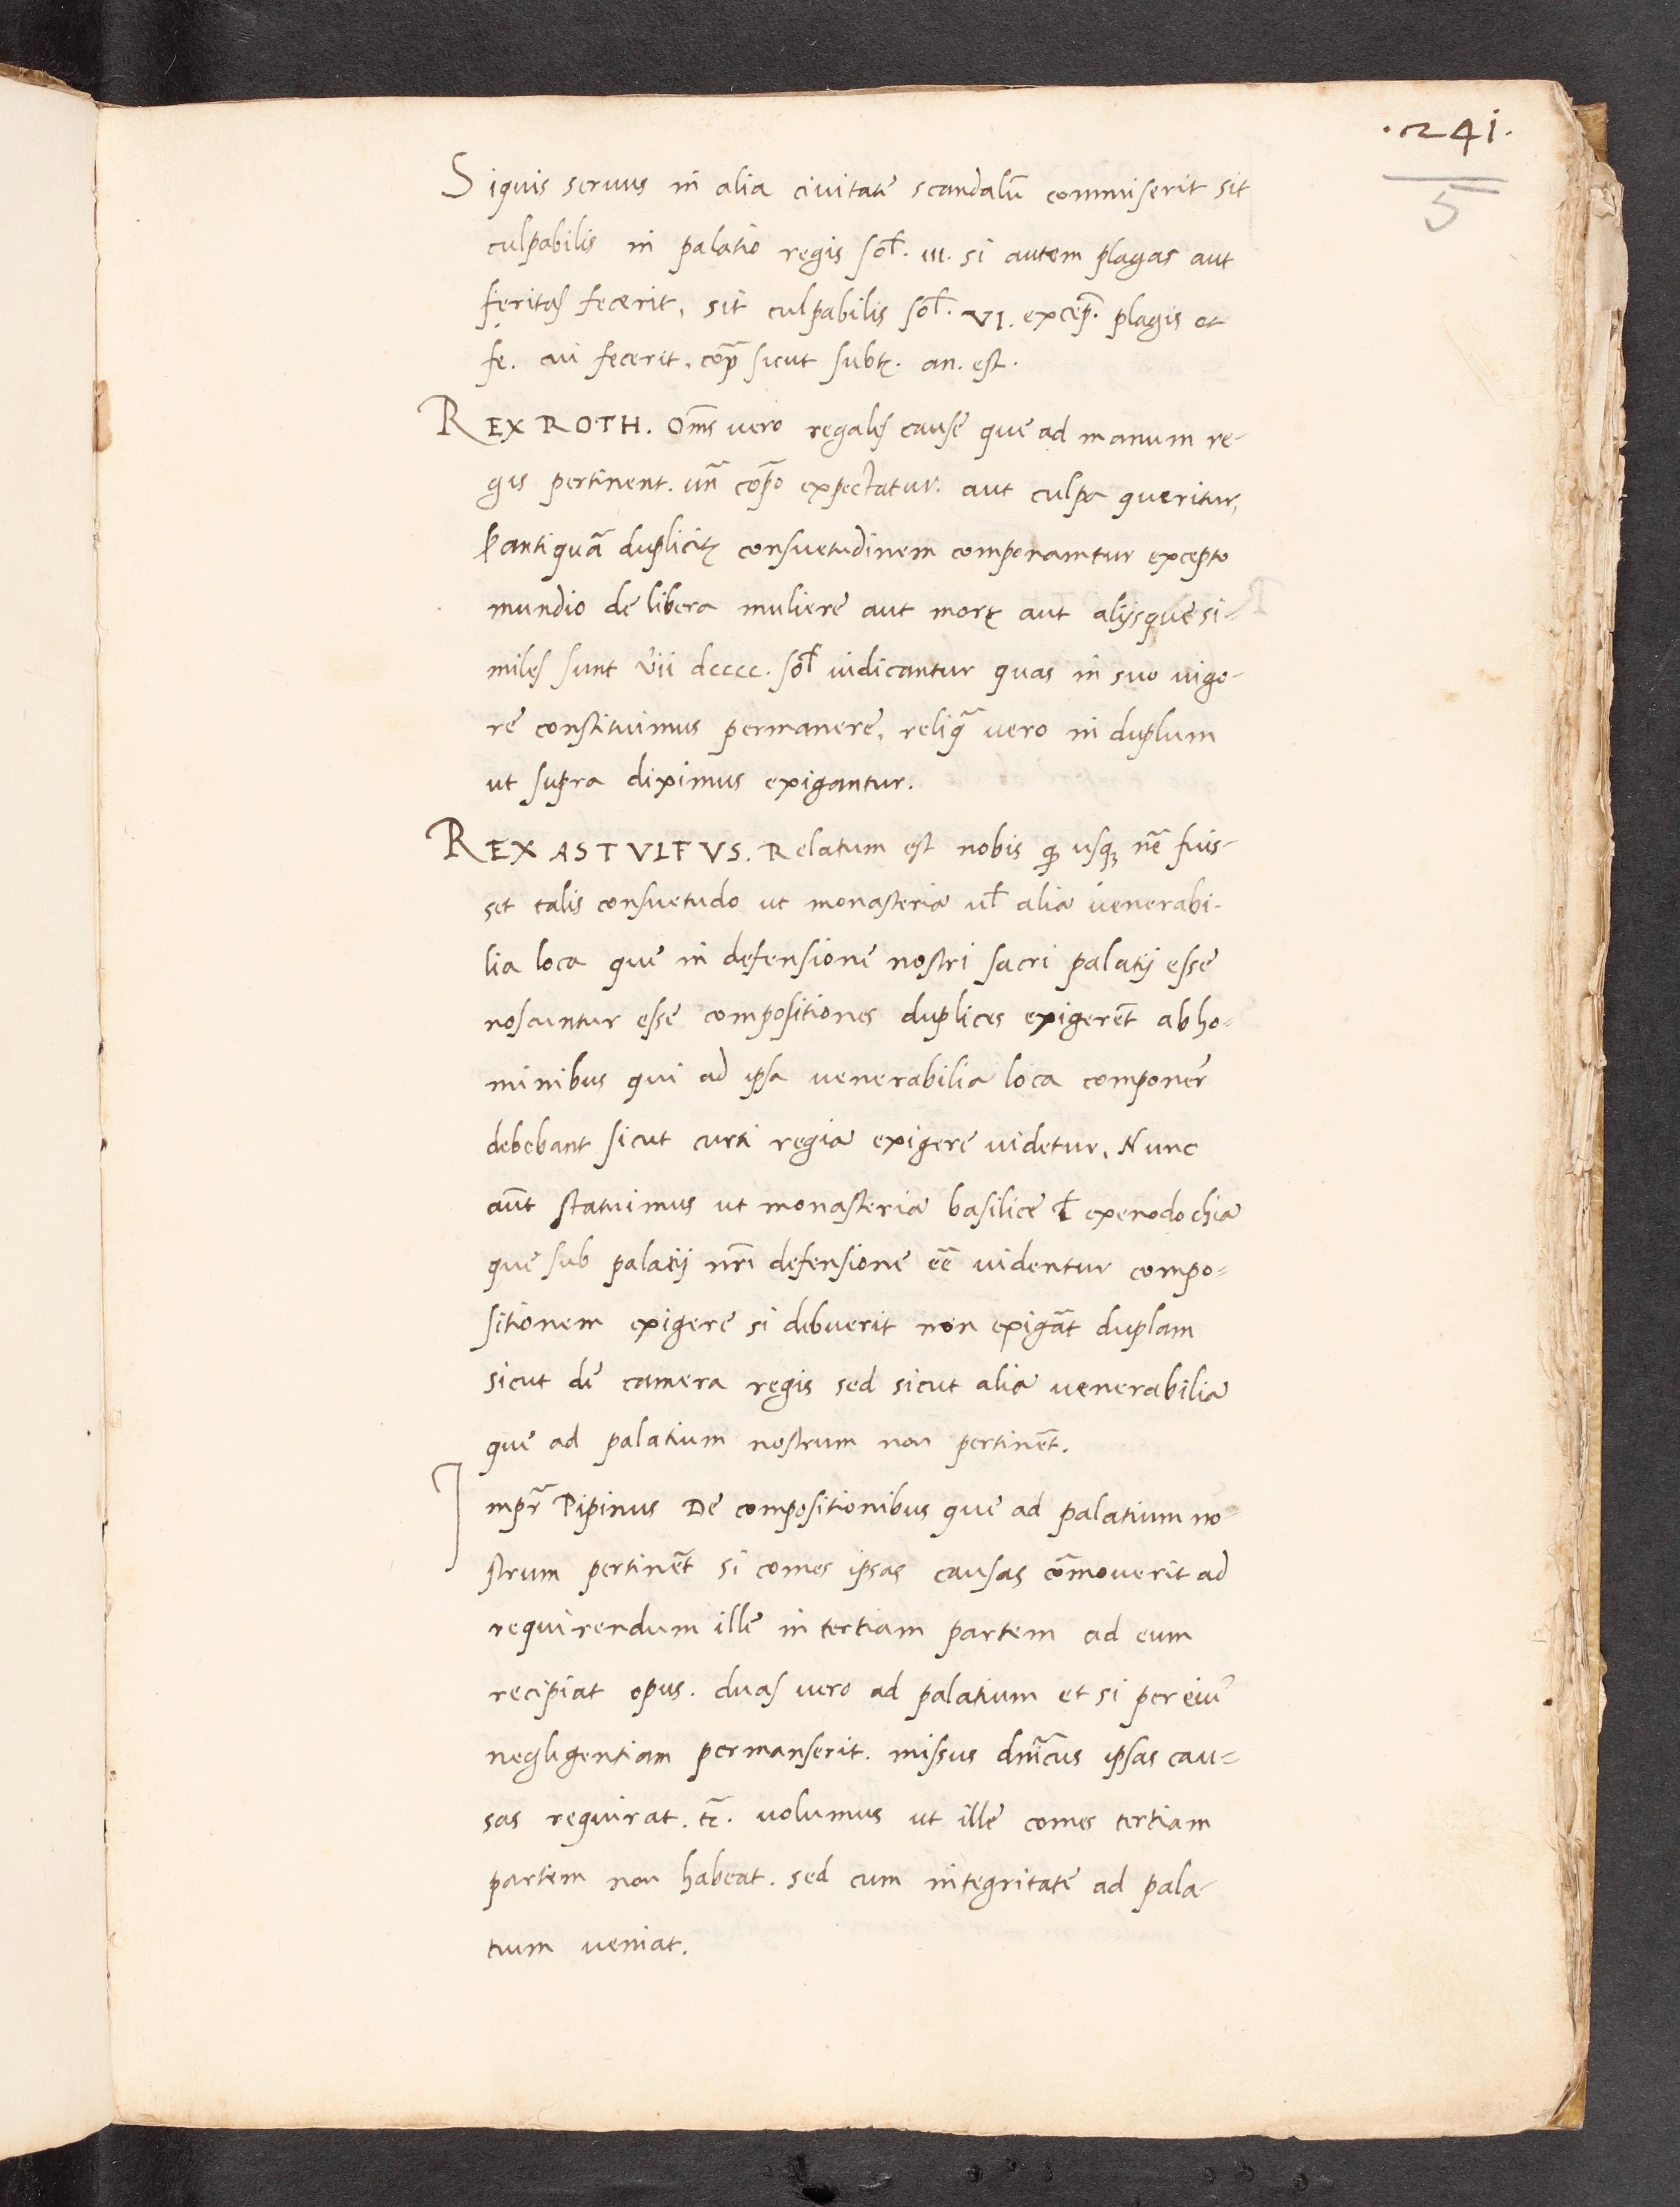 .241.
5
Siquis seruus in alia ciuitate scandalũ commiserit sit
culpabilis in palatio regis sol̃. III. si autem plagas aut
feritas fecerit, sit culpabilis sol̃. VI. excep̃. plagis et
fe. cui fecerit, cop̃ sicut subt. an. est.
REX ROTH. Om̃s uero regales cause que ad manum re-
gis pertinent. un̄ cop̃o expectatur. aut culpa queritur,
ꝑ antiquã duplicit consuetudinem componantur excepto
mundio de libera muliere aut mort aut alijsque si-
miles sunt uii dcccc. sol̃ iudicantur quas in suo uigo-
re constituimus permanere, reliq̃ uero in duplum
ut supra diximus exigantur.
REX ASTVLFVS. Relatum est nobis qᷓ usq; nc̃ fuis-
set talis consuetudo ut monasteria ul̃ alia uenerabi-
lia loca que in defensione nostri sacri palatij esse
noscuntur esse compositiones duplices exigerẽt ab ho-
minibus qui ad ipsa uenerabilia loca componer̃
debebant sicut curti regia exigere uidetur, Nunc
aũt statuimus ut monasteria basilice ł exenodochia
que sub palatij nr̃i defensione eẽ uidentur compo-
sitionem exigere si debuerit non exigãt duplam
sicut de camera regis sed sicut alia uenerabilia
que ad palatium nostrum non pertinẽt.
Impr̃ Pipinus De compositionibus que ad palatium no-
strum pertinẽt si comes ipsas causas cõmouerit ad
requirendum ille in tertiam partem ad eum
recipiat opus. duas uero ad palatium et si per eiu᾽
negligentiam permanserit. missus dñicus ipsas cau-
sas requirat. tc̃. uolumus ut ille comes tertiam
partem non habeat. sed cum integritate ad pala-
tium ueniat.